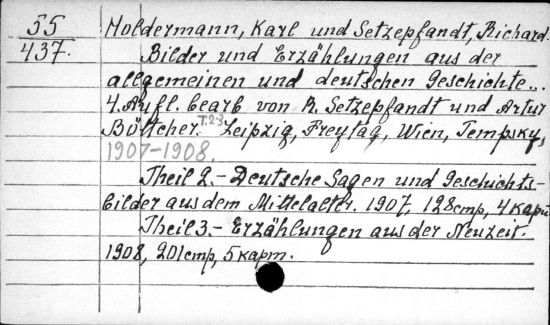 55
437.
Holdermann, Karl und Setzepfandt, Richard.
Bilder und Erzählungen aus der
allgemeinen und deutschen Geschichte...
4. Aufl. bearb von R. Setzepfandt und Artur
Böttcher. T. 2-3 Leipzig, Freytag, Wien, Tempsky,
1907-1908.
Theil 2.- Deutsche Sagen und Geschichts-
bilder aus dem Mittelalter. 1907, 128 стр, 4 карт
Theil 3.- Erzählungen aus der Neuzeit.
1908, 201 стр, 5 карт.